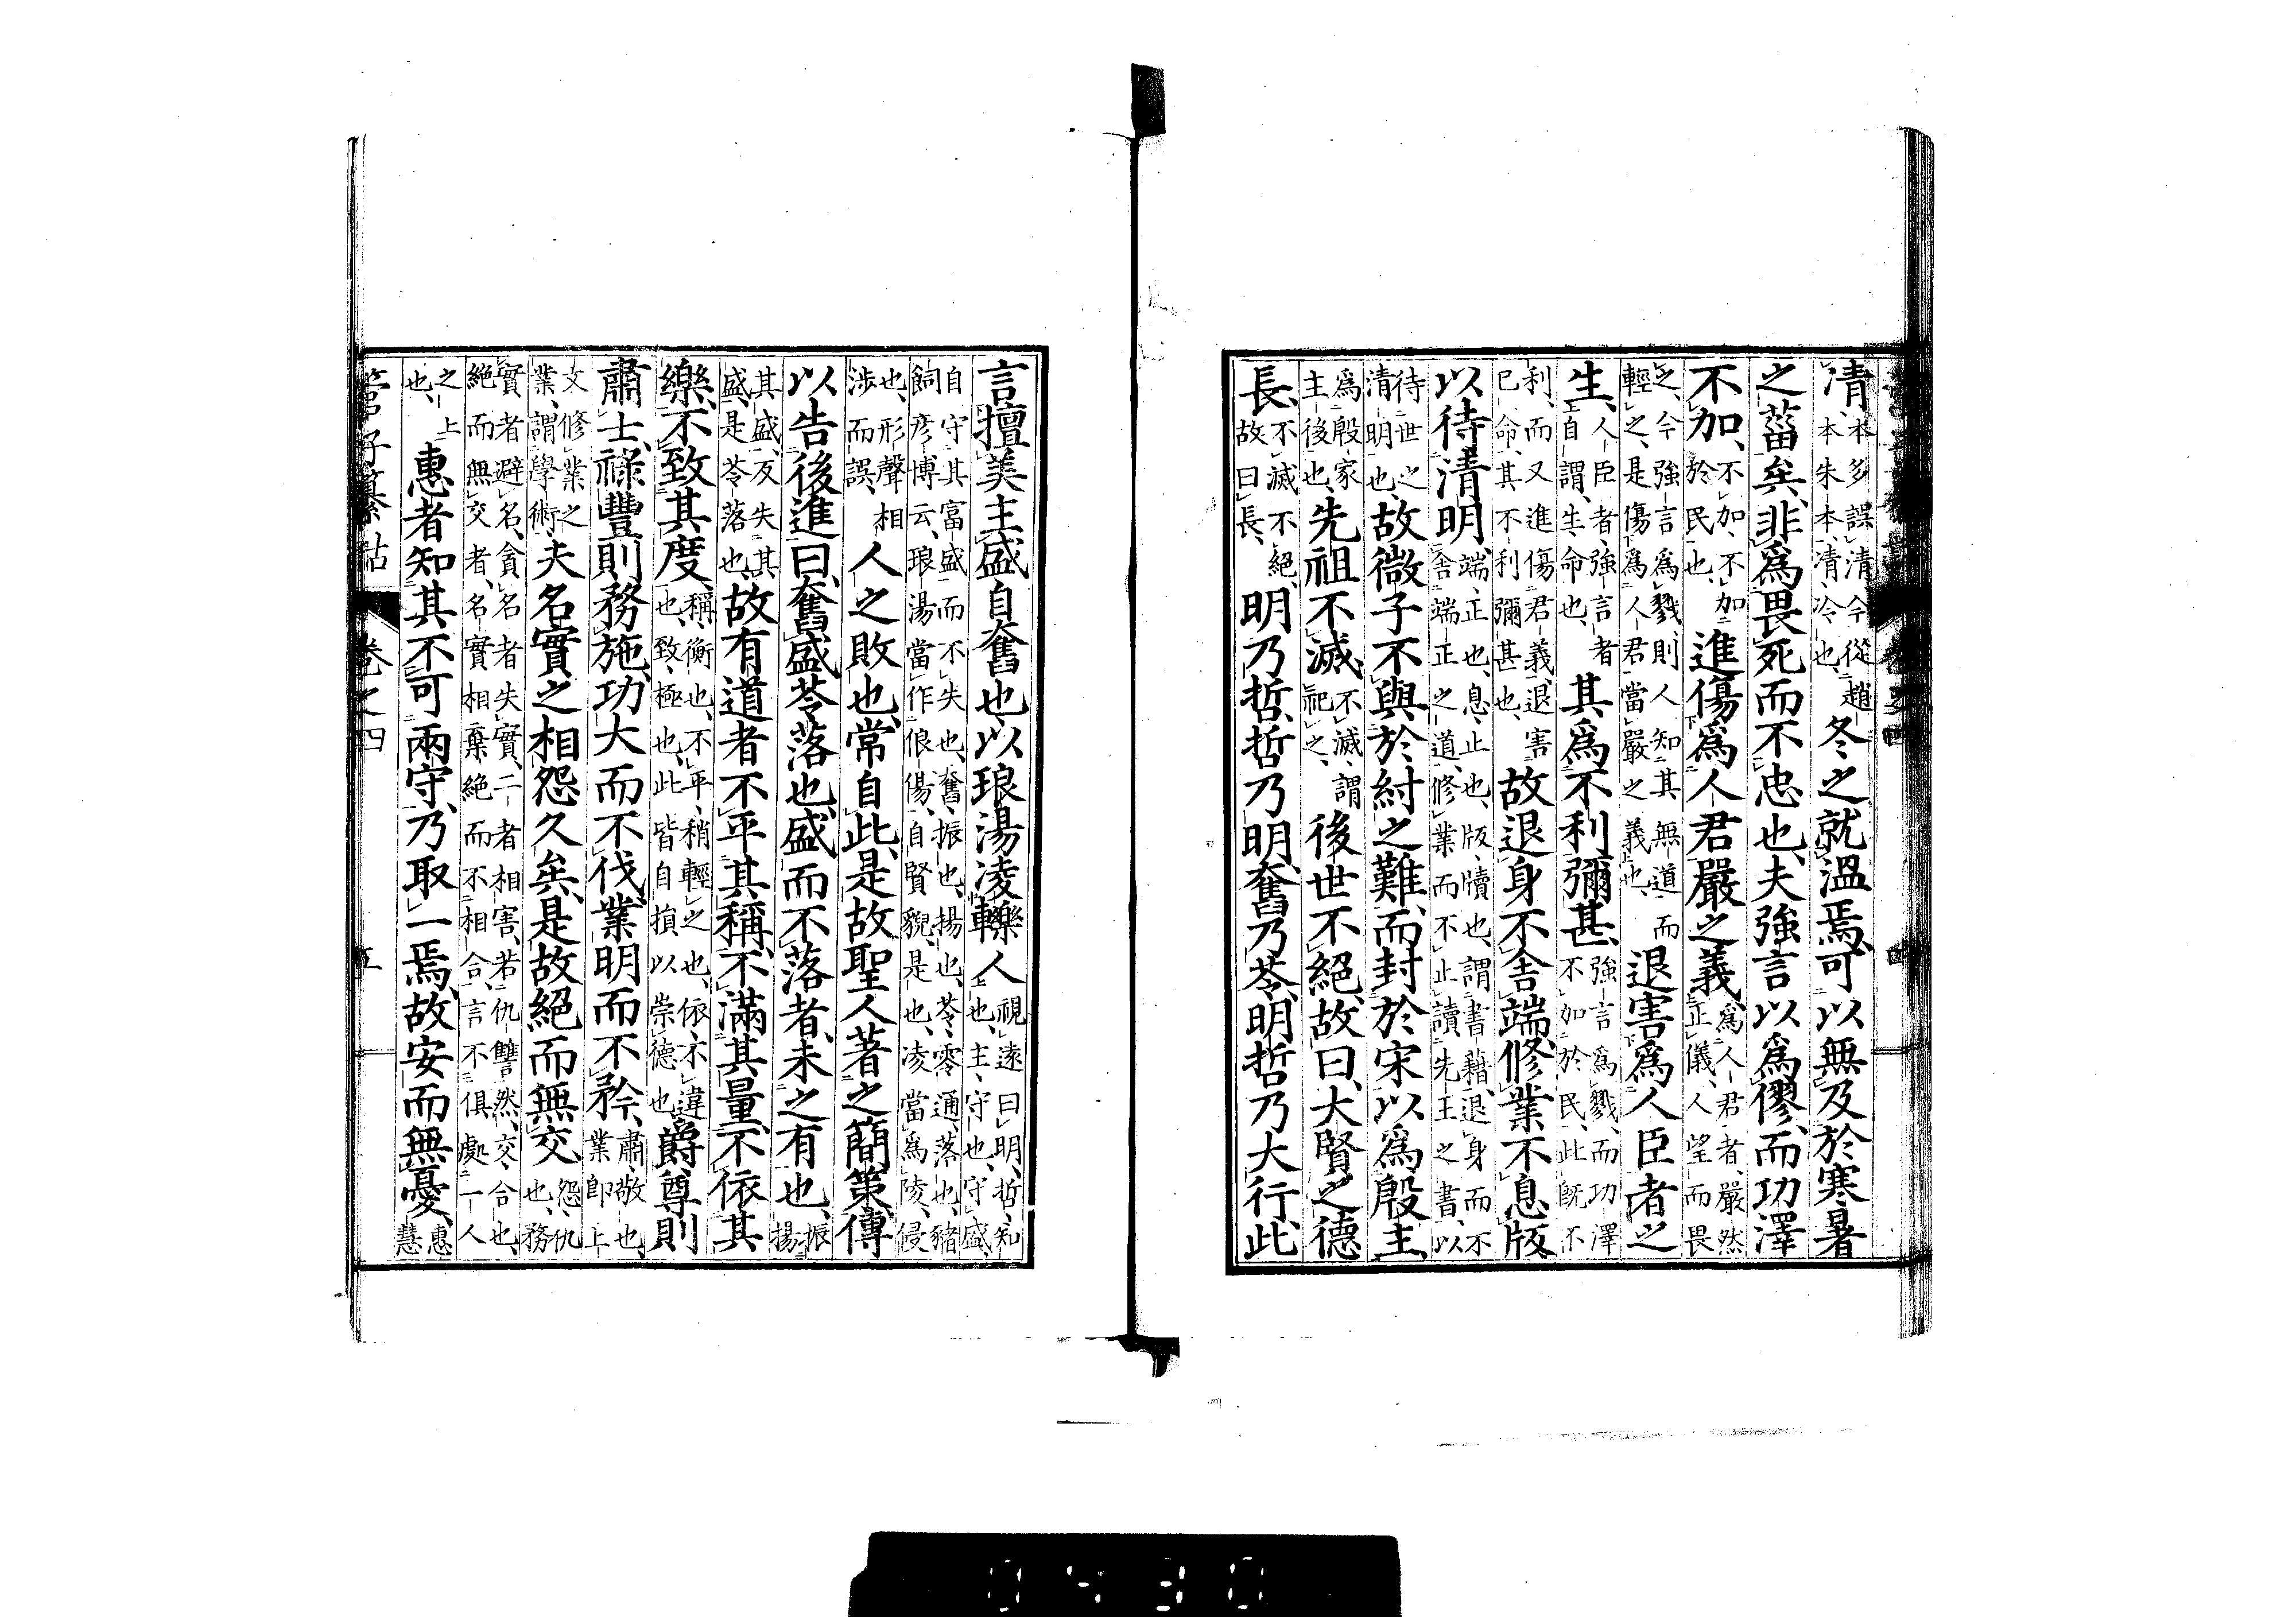 清、本多誤清今從趙
本朱本、凊、冷也、冬之就溫焉、可以無及於寒暑
之菑矣、非爲畏死而不忠也、夫強言以爲僇、而功澤
不加、不加、不加
於民也、進傷爲人君嚴之義、爲人君者、嚴然
正儀、人望而畏
之、今強言爲戮、則人知其無道而
輕之、是傷爲人君當嚴之義也、退害爲人臣者之
生、人臣者、強言者
自謂生命也、其爲不利彌甚、強言爲戮、而功澤
不加於民、此旣不
利、而又進傷君義、退害
已命、其不利彌甚也、故退身不舍端、修業不息版
以待清明、端、正也、息、止也、版、牘也、謂書藉、退身而不
舍端正之道、修業而不止讀先王之書、以
待世之
清明也、故微子不與於紂之難、而封於宋以爲殷主、
爲殷家
主後也、先祖不滅、不滅、謂
祀之、後世不絕、故曰、大賢之德
長、不滅不絕、
故曰長、明乃哲、哲乃明、奮乃苓、明哲乃大行、此
言擅美主盛自奮也、以琅湯淩轢人視遠曰明、哲、知
也、主、守也、守盛
自守其富盛而不失也、奮、振也、揚也、苓、零通、落也、豬
飼彥博云、琅湯當作俍傷、自賢貌、是也、凌當爲陵、侵
也、形聲相
涉而誤、人之敗也、常自此、是故聖人著之簡策、傳
以告後進曰、奮盛苓落也、盛而不落者、未之有也、振
揚
其盛、反失其
盛、是苓落也、故有道者不平其稱、不滿其量、不依其
樂、不致其度、稱、衡也、不平、稍輕之也、依、不違
也、致、極也、此皆自損以崇德也、爵尊則
肅士、祿豐則務施、功大而不伐、業明而不矜、肅、敬也、
業卽上
文修業之
業、謂學術、夫名實之相怨久矣、是故絕而無交、怨、仇
也、務
實者避名、貪名者失實、二者相害、若仇讐然、交、合也、
絕而無交者、名實相棄絕而不相合、言不俱處一人
之上
也、惠者知其不可兩守、乃取一焉、故安而無憂、惠
慧
管子纂詁 卷之四 五